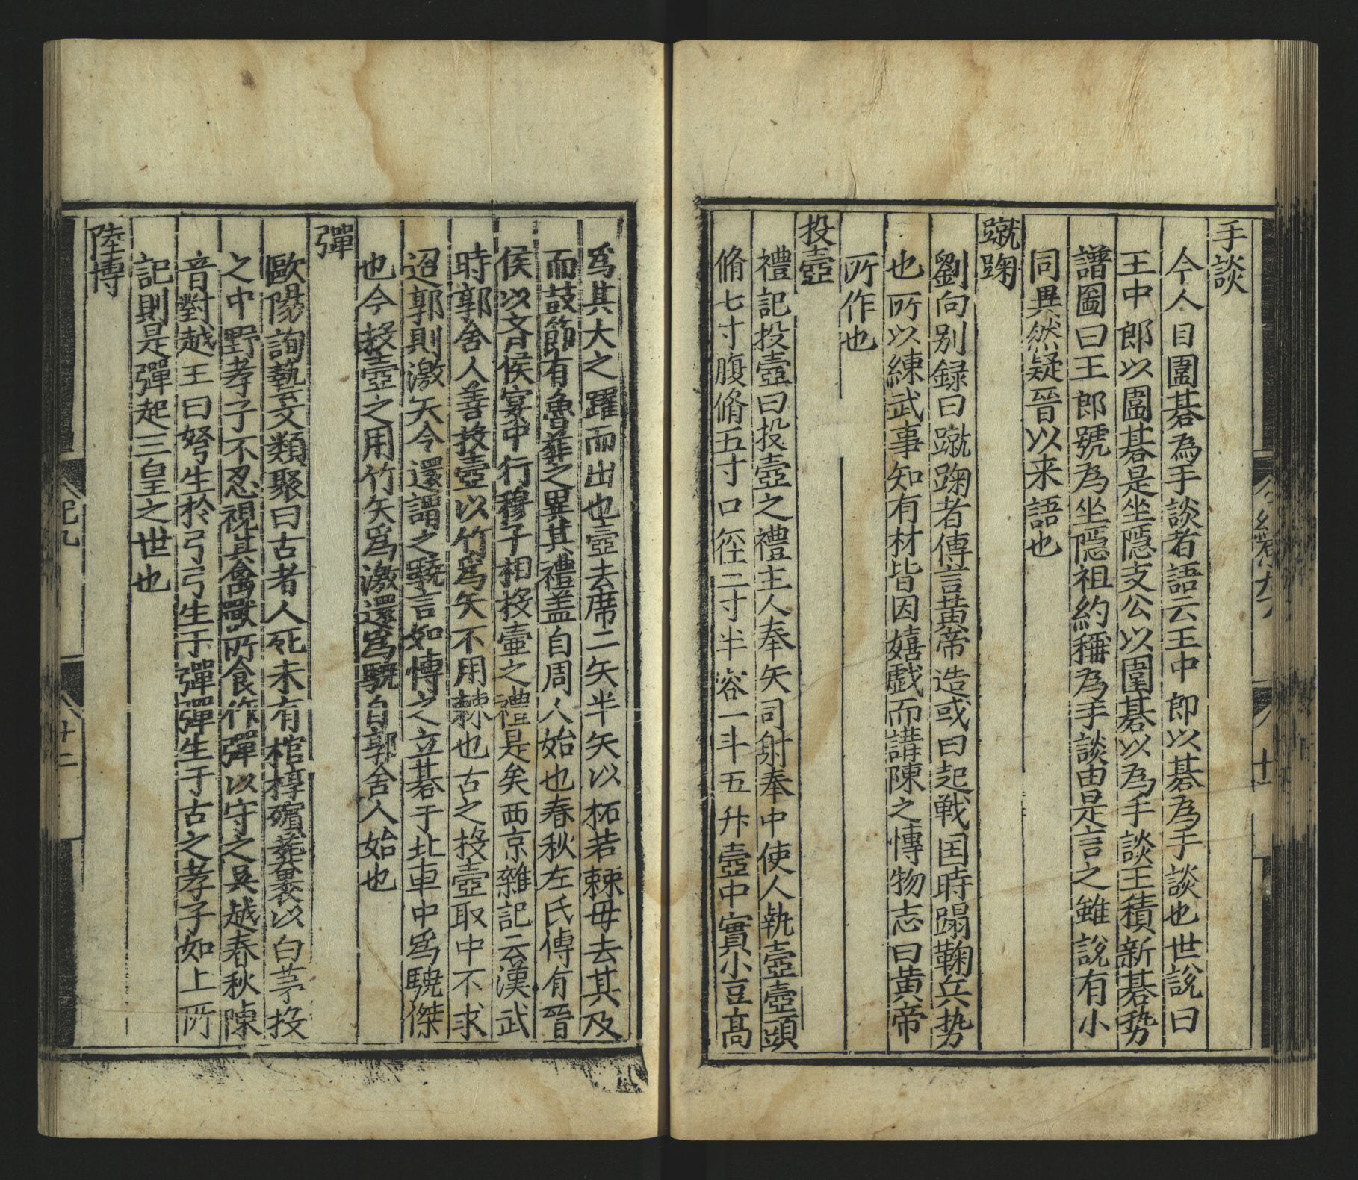 手談
今人目圍碁為手談者語云王中郎以碁為手談也世說曰
王中郎以圍碁是坐隱支公以圍碁以為手談王積新碁勢
譜圖曰王郎號為坐隱祖約稱為手談由是言之雖說有小
同異然疑晉以来語也
蹴踘
劉向别録曰蹴踘者傳言黃帝造或曰起戰国時蹋鞠兵势
也所以練武事知有材皆因嬉戯而講陳之愽物志曰黄帝
所作也
投壺
禮記投壺曰投壺之禮主人奉矢司射奉中使人執壺壺頭
脩七寸腹脩五寸口徑二寸半容一斗五升壺中實小豆髙
爲其大之躍而出也壺去席二矢半矢以柘若棘毋去其皮
而鼓節有魯薛之異其禮盖自周人始也春秋左氏傳有晉
侯以斉侯宴中行穆子相投壷之禮是矣西京雜記云漢武
時郭舍人善投壺以竹爲矢不用棘也古之投壺取中不求
還郭則激天今還謂之驍言如愽之立碁于北車中爲驍傑
也今投壺之用竹矢爲激還爲驍自郭舍人始也
彈
歐陽詢藝文類聚曰古者人死未有棺椁殯葬褁以白茅投
之中野孝子不忍視其禽獸所食作彈以守之吳越春秋陳
音對越王曰弩生於弓弓生于彈彈生于古之孝子如上所
記則是彈起三皇之世也
陸博
紀九
廿二